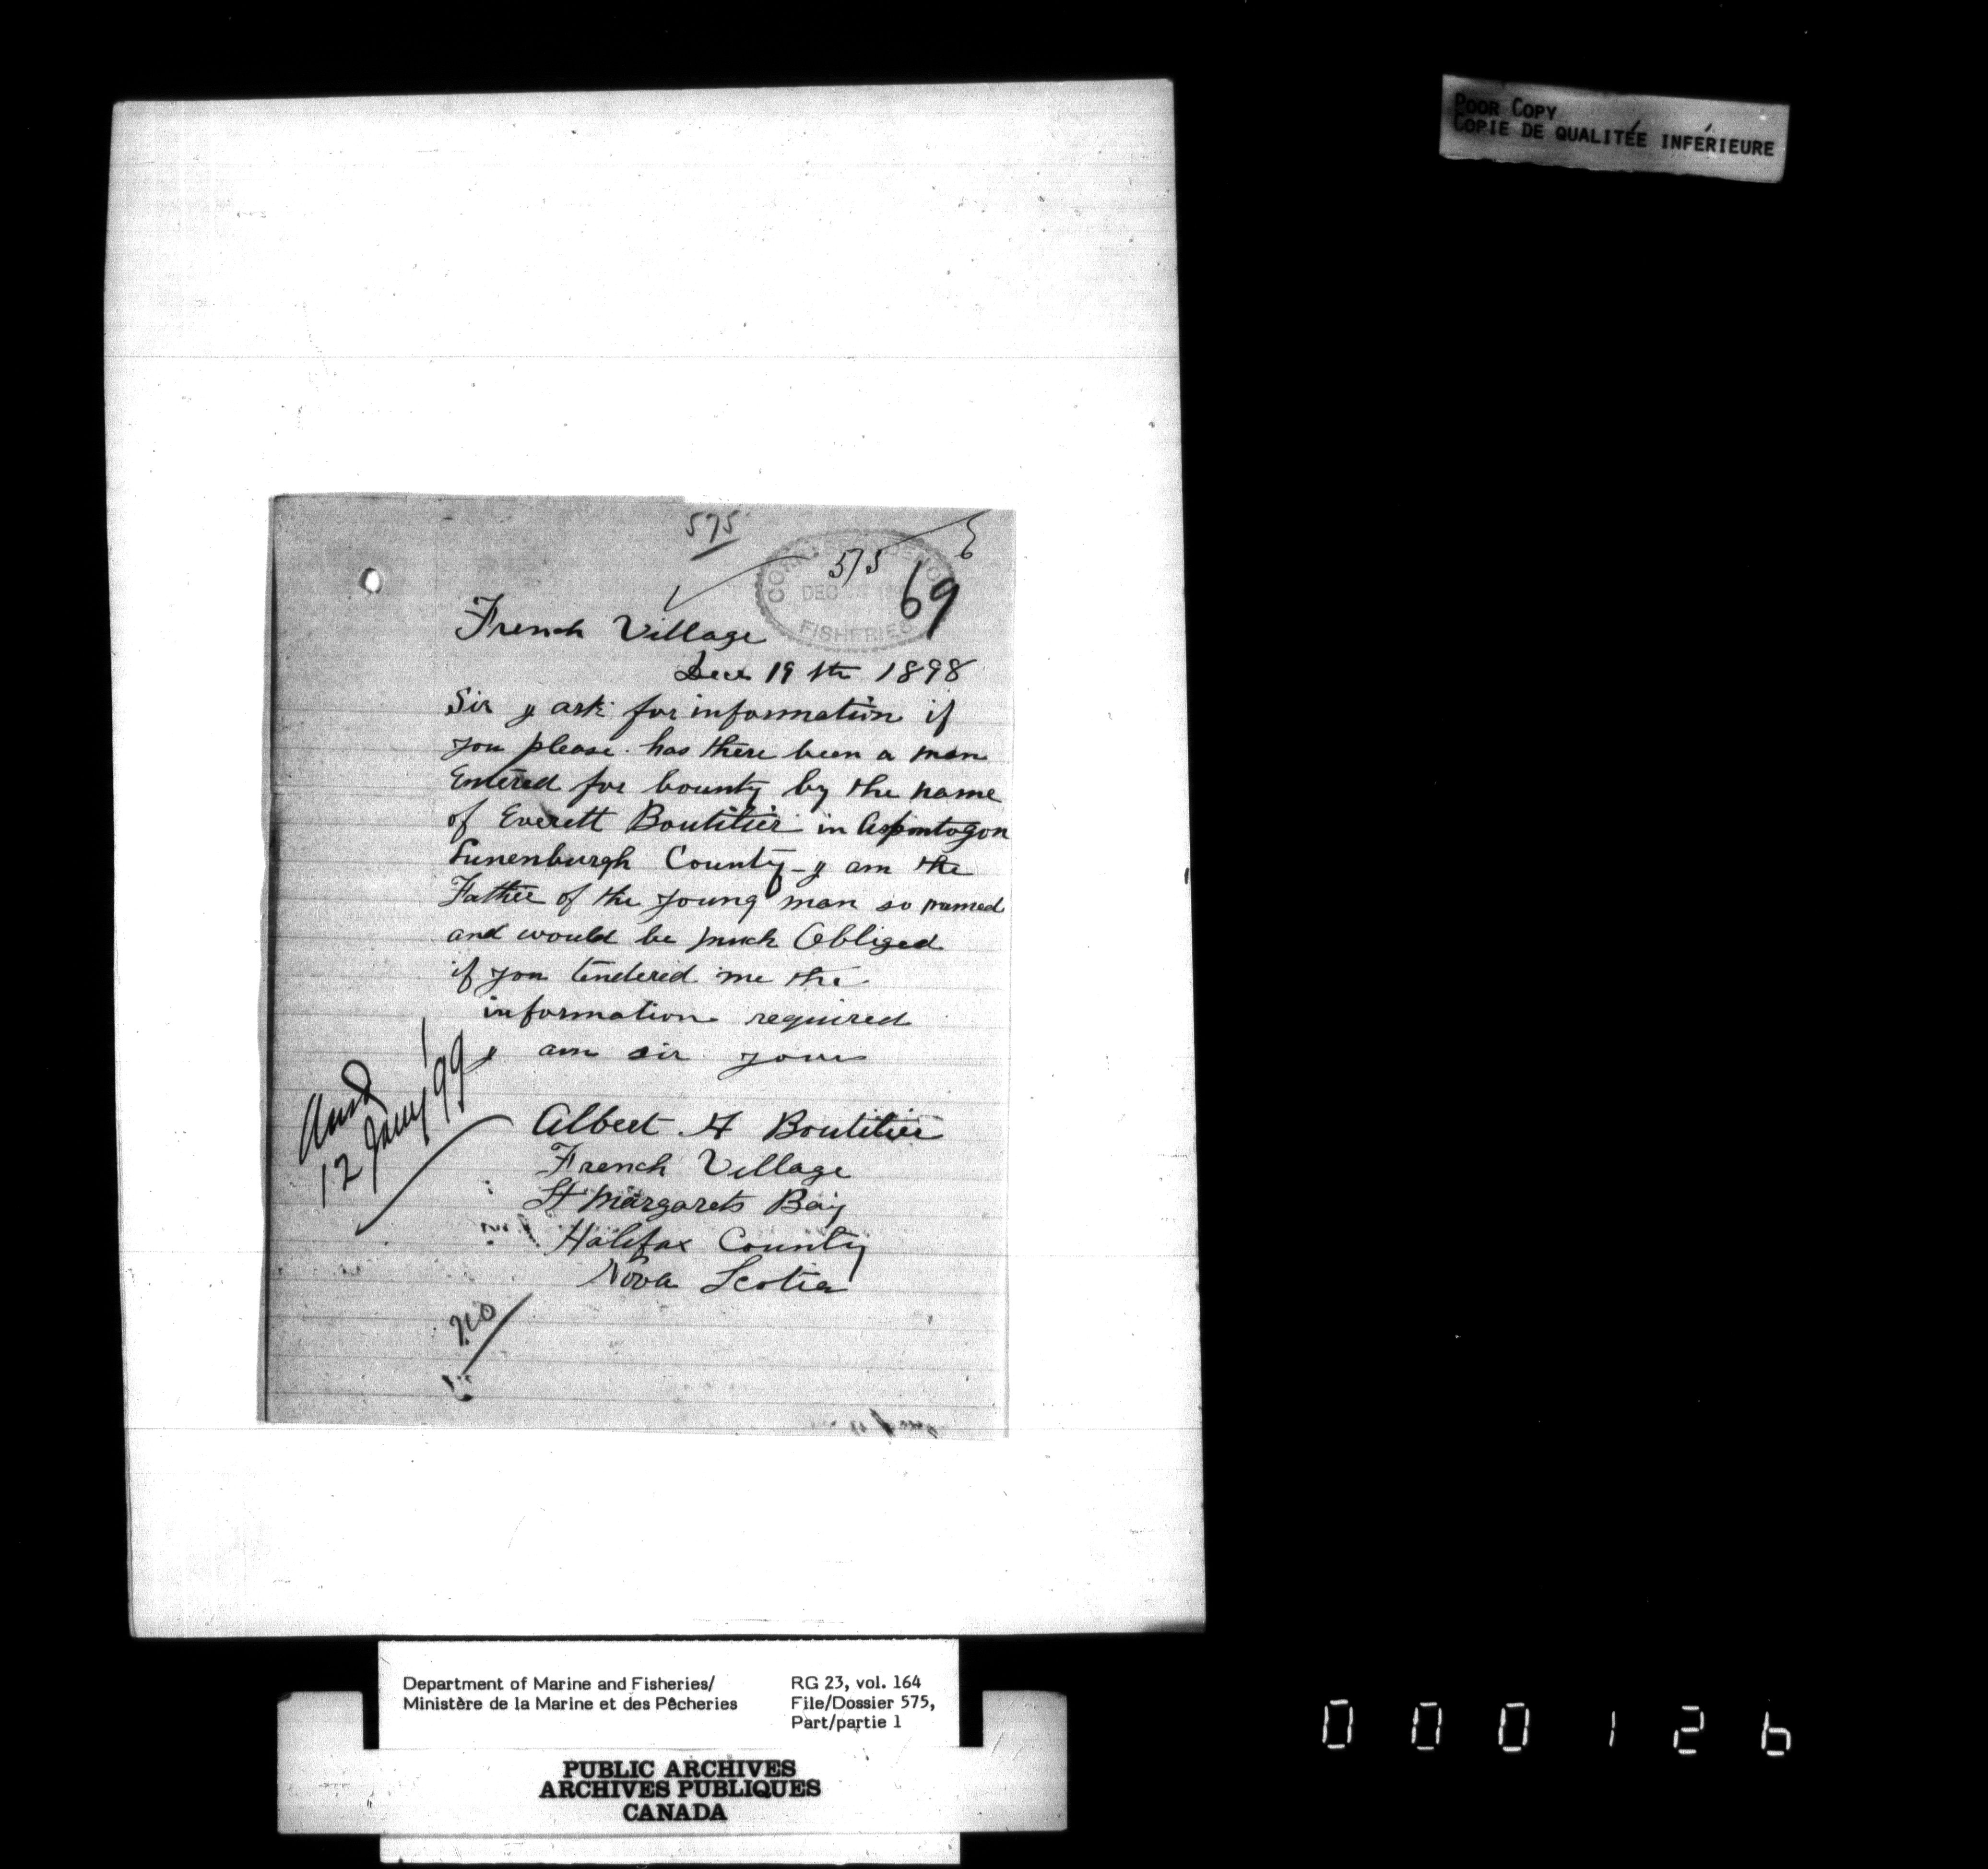 POOR COPY
COPIE DE QUALITÉE INFÉRIEURE
575
575
69
CORRESPONDENCE
DEC
FISHERIES
French Village
Dec 19th 1898
Sir I ask for information if
you please. has there been a man
Entered for bounty by the name
of Everett Boutilier in Aspontogon
Lunenburgh County - I am the
Father of the young man so named
and would be much Obliged
if you tendered me the
information required
I am sir yours
Albert H Boutilier
French Village
St Margarets Bay
Halifax County
Nova Scotia
Ansd
12 Jany '99
no
Department of Marine and Fisheries/
Ministère de la Marine et des Pêcheries
RG 23, vol. 164
File/Dossier 575,
Part/partie 1
PUBLIC ARCHIVES
ARCHIVES PUBLIQUES
CANADA
000126